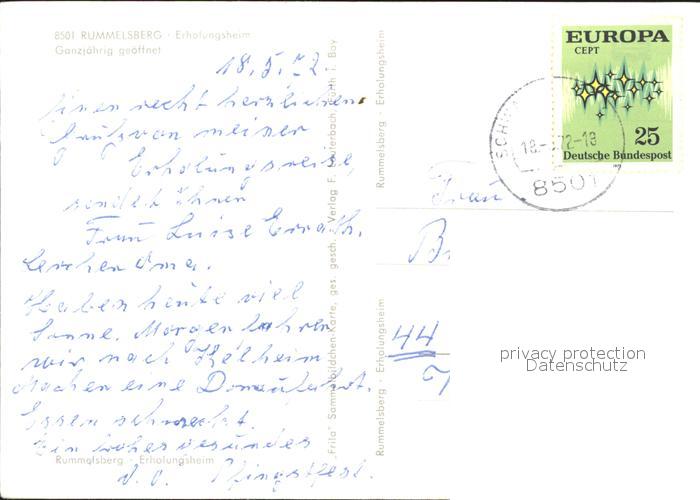 8501 RUMMELSBERG · Erholungsheim
Ganzjährig geöffnet
18.5.72.
Einen recht herzlichen
Gruß von meiner
Erholungsreise,
sendet Ihnen
Frau Luise
Haben heute viel
Sonne. Morgen fahren
wir nach Kelheim
Machen eine Donaufahrt.
Essen schmeckt.
Ein frohes gesundes
Pfingstfest.
Rummelsberg · Erholungsheim
„Frila" Sammelbildchen-Karte, ges. gesch. · Verlag F. i. Bay
Rummelsberg · Erholungsheim
Rummelsberg · Erholungsheim
EUROPA
CEPT
25
Deutsche Bundespost
72-18
8501
Frau
44
privacy protection
Datenschutz